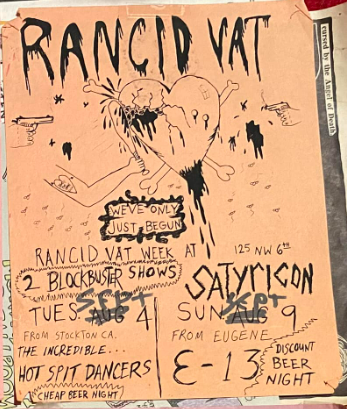 RANCID VAT
cursed by the Angel of Death
WE'VE ONLY
JUST BEGUN
RANCID VAT WEEK AT 125 NW 6TH
2 BLOCKBUSTER SHOWS
SATYRICON
TUES AUG SEPT 4
SUN AUG SEPT 9
FROM STOCKTON CA.
FROM EUGENE
THE INCREDIBLE...
HOT SPIT DANCERS
E-13
DISCOUNT
BEER
NIGHT
CHEAP BEER NIGHT